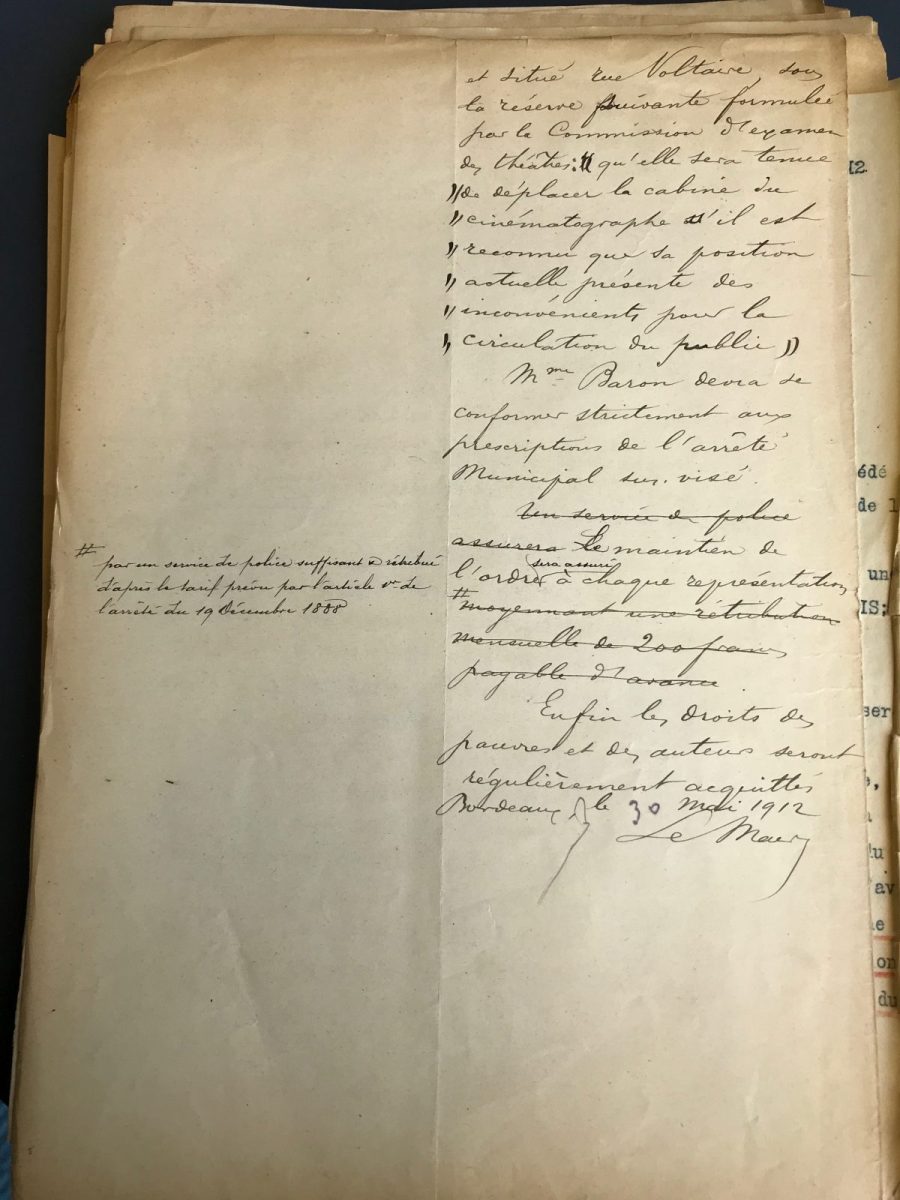 et situé rue Voltaire, sous
la réserve suivante formulée
par la Commission d'examen
des théâtres: " qu'elle sera tenue
" de déplacer la cabine du
" cinématographe s'il est
" reconnu que sa position
" actuelle présente des
" inconvénients pour la
" circulation du public "
Mme Baron devra se
conformer strictement aux
prescriptions de l'arrêté
Municipal sus-visé.
Un service de police
assurera Le maintien de
l'ordre sera assuré à chaque représentation
# moyennant une rétribution
mensuelle de 200 francs
payable d'avance.
# par un service de police suffisant & rétribué
d'après le tarif prévu par l'article 1er de
l'arrêté du 19 Décembre 1888
Enfin les droits des
pauvres et des auteurs seront
régulièrement acquittés
Bordeaux, le 30 Mai 1912
Le Maire
12
édé
de l
un
IS;
ser
,
du
av
le
on
du